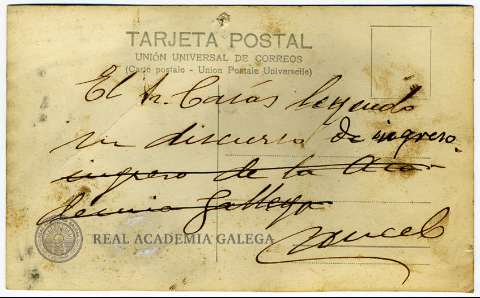 TARJETA POSTAL
UNIÓN UNIVERSAL DE CORREOS
(Carte postale - Union Postale Universelle)
El Sr. Casás leyendo
un discurso de ingreso
ingreso de la Aca-
demia Gallega
REAL ACADEMIA GALEGA